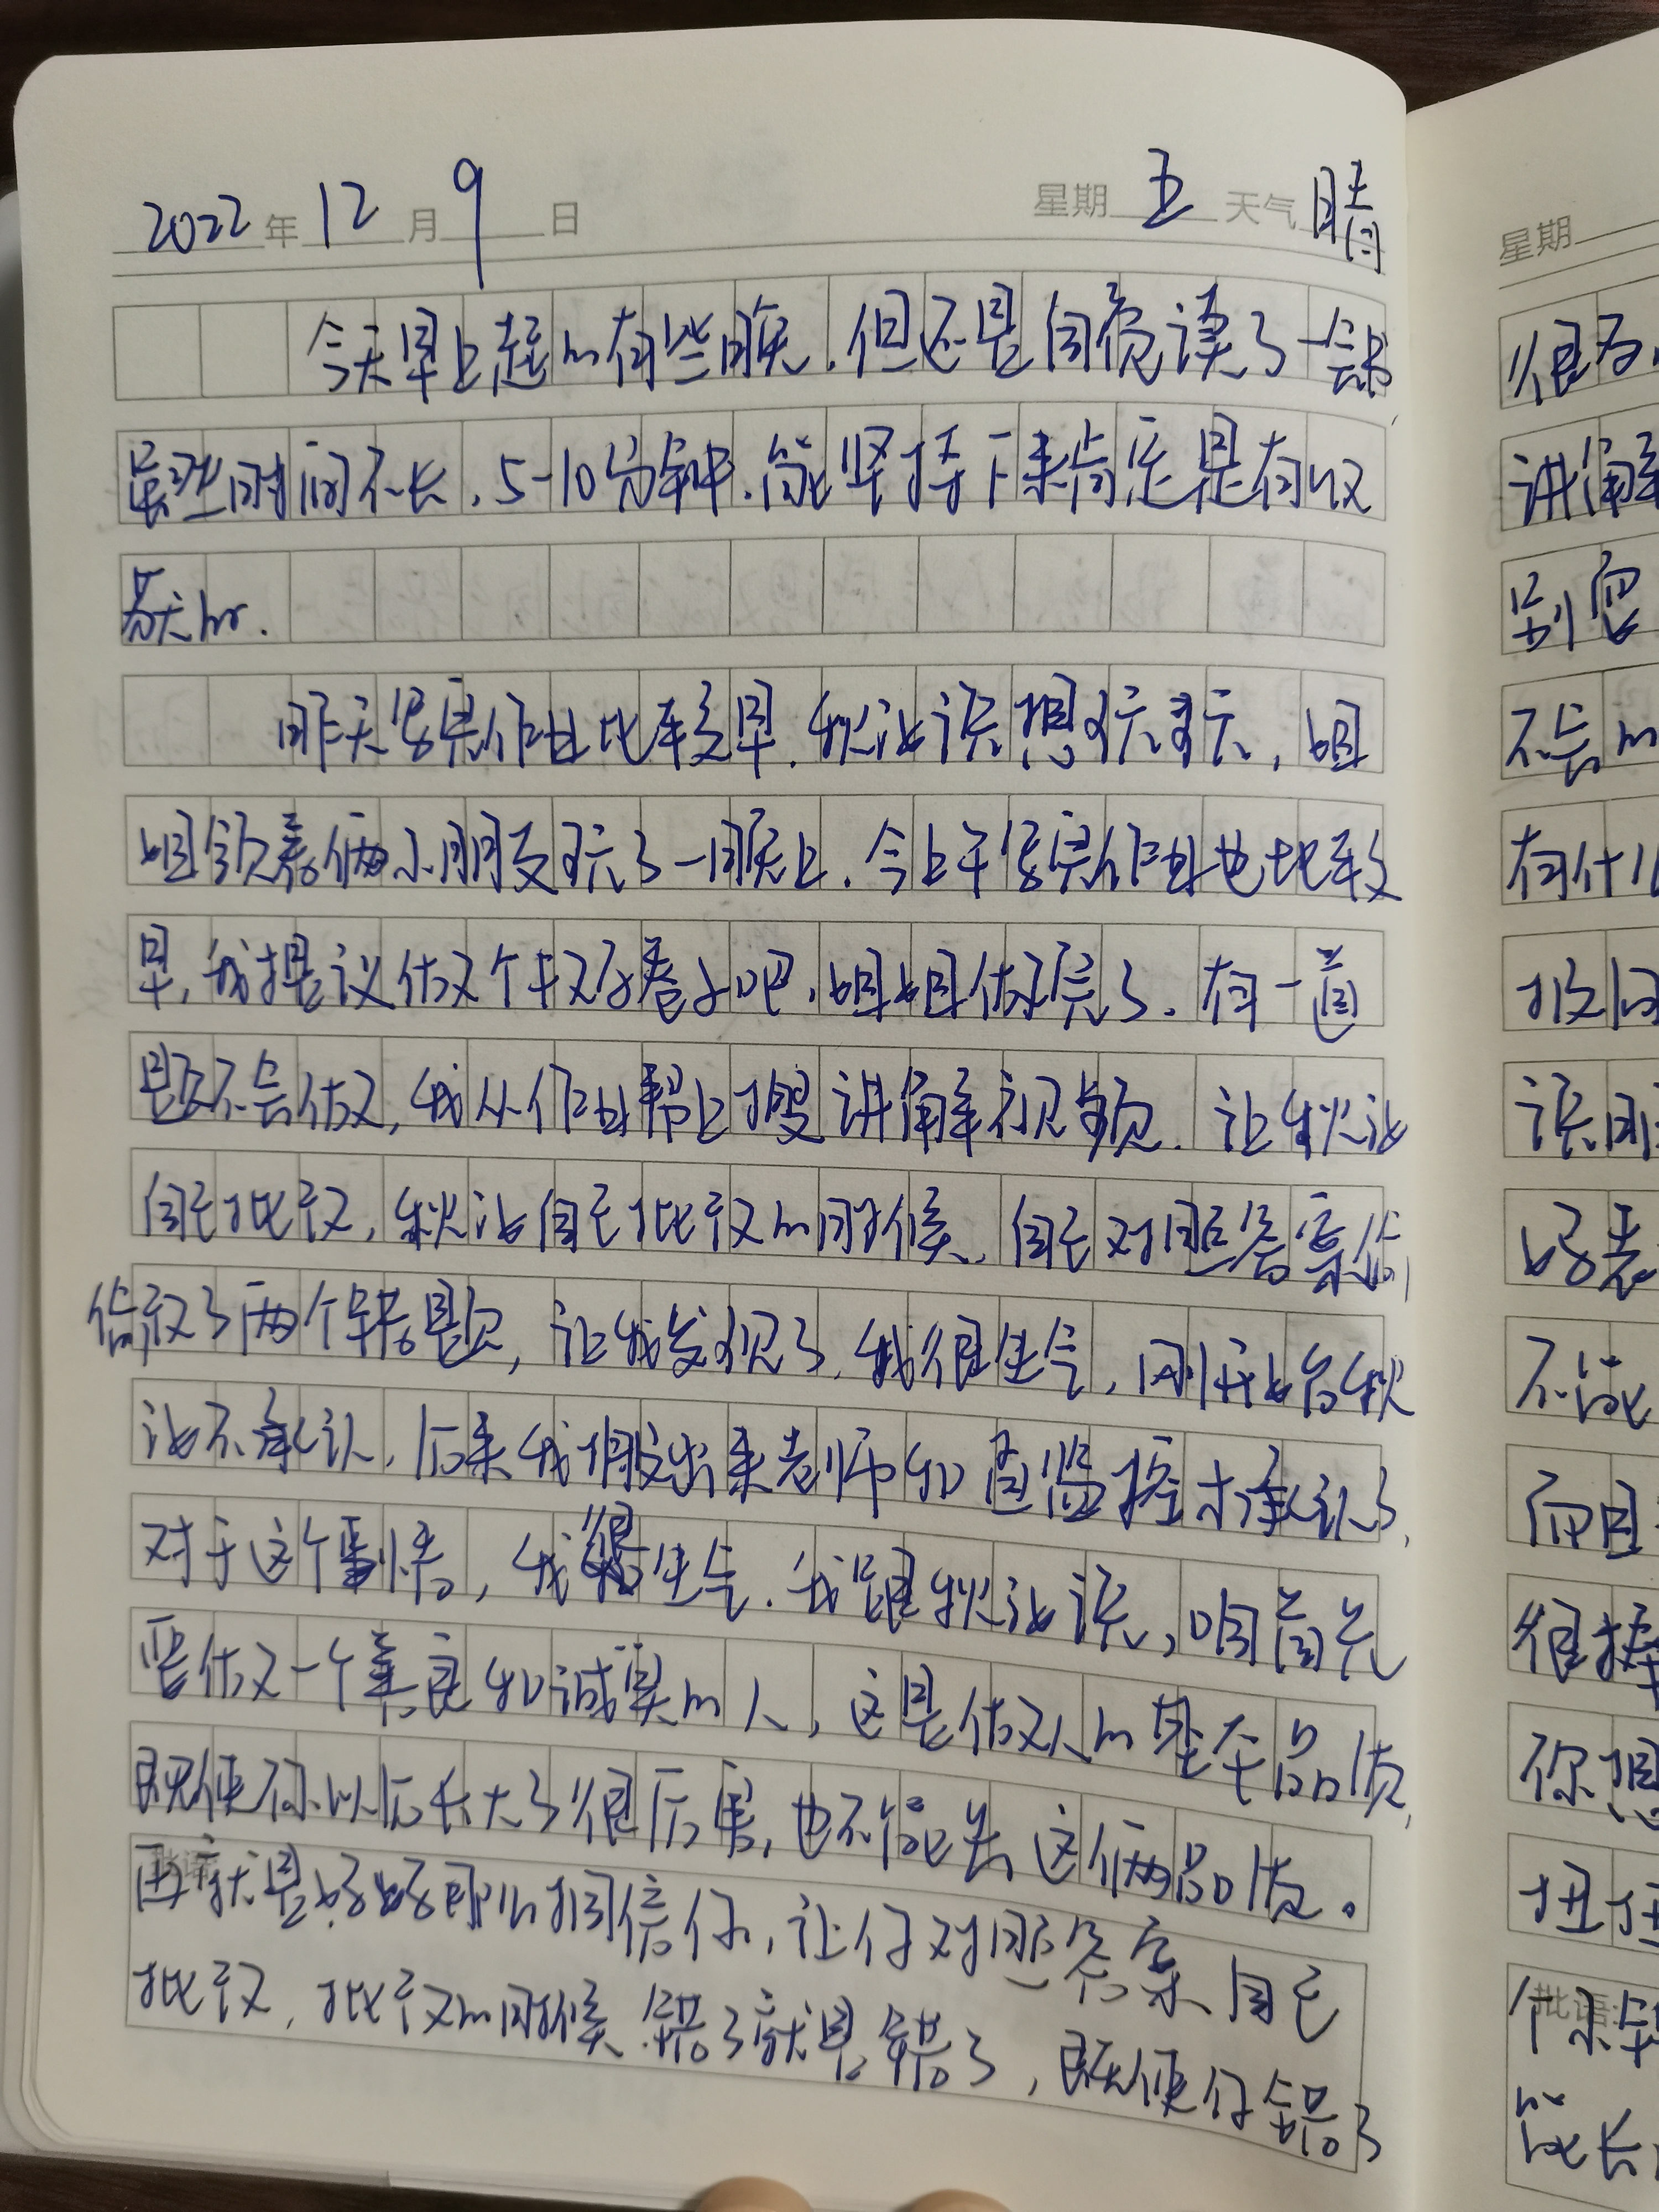 2022年12月9日 星期五 天气晴
今天早上起的有些晚，但还是自觉读了一会书
虽然时间不长，5-10分钟，能坚持下来肯定是有收
获的.
昨天写完作业比较早，秋汝说想玩玩，姐
姐领着俩小朋友玩了一晚上，今上午写完作业也比较
早，我提议做个数学卷子吧，姐姐做完了，有一道
题不会做，我从作业帮上搜讲解视频，让秋汝
自己批改，秋汝自己批改的时候，自己对照答案偷偷
改了两个错题，让我发现了，我很生气，刚开始秋
汝不承认，后来我搬出来老师和查监控才承认了，
对于这个事情，我很生气，我跟秋汝说，咱首先
要做一个善良和诚实的人，这是做人的基本品质，
既使你以后长大了很厉害，也不能丢这俩品质。
再就是妈妈相信你，让你对照答案自己
批改，批改的时候错了就是错了，既使你错了
星期
很
讲解
别
不会的
有什
没
说
好老
不
而且
很
你想
扭扭
批语:
个
长